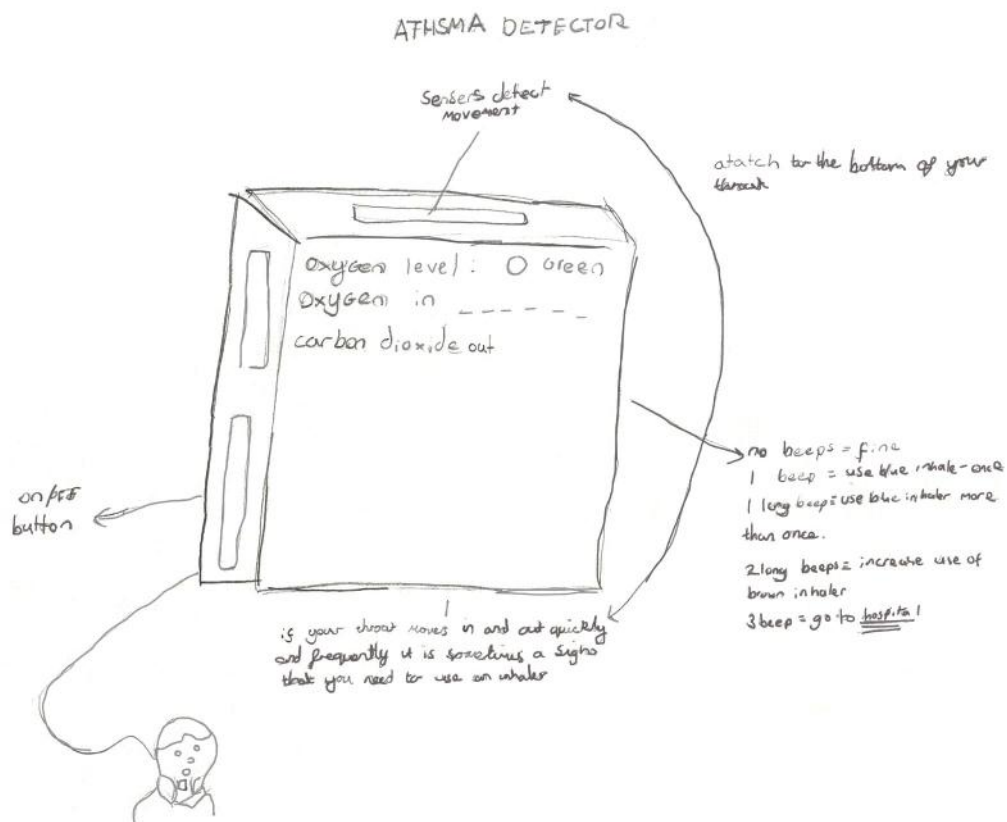 ATHSMA DETECTOR
Sensers detect
movement
atatch to the bottom of your
throat
oxygen level: O Green
Oxygen in _ _ _ _ _ _
carbon dioxide out
on/off
button
no beeps = fine
1 beep = use blue inhale-once
1 long beep = use blue inhaler more
than once.
2 long beeps = increase use of
brown inhaler
3 beep = go to hospital!
if your throat moves in and out quickly
and frequently it is sometimes a sign
that you need to use an inhaler